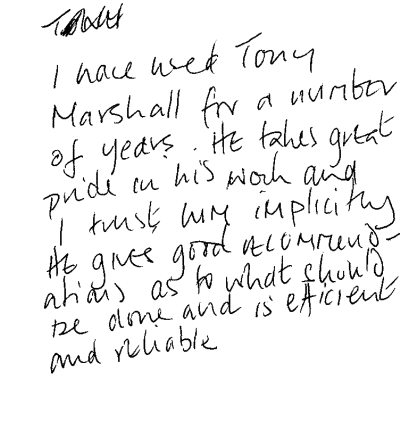 I have used Tony
Marshall for a number
of years. He takes great
pride in his work and
I trust him implicitly
He gives good recommend-
ations as to what should
be done and is efficient
and reliable